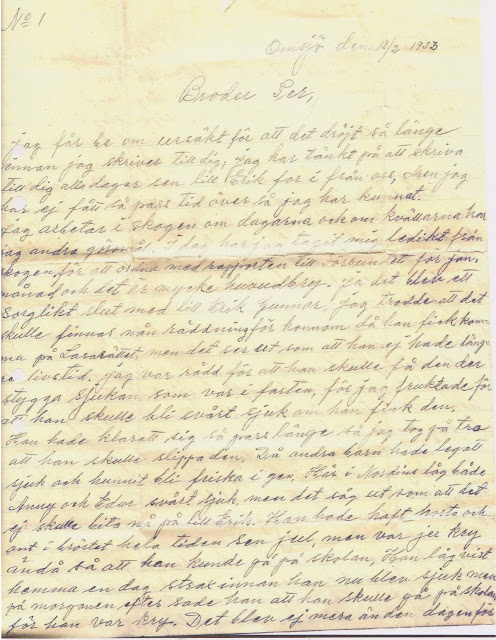 No 1
Omsjö den 18/2 1933
Broder Per,
Jag får be om ursäkt för att det dröjt så länge
innan jag skriver till dig, Jag har tänkt på att skriva
till dig alla dagar sen lill Erik for i från oss, men jag
har ej fått så pass tid över så jag har kunnat.
Jag arbetar i skogen om dagarna och om kvällarna har
jag andra göromål, I dag har jag tagit mig ledikt från
skogen, för att ordna med rapporten till för jan.
månad och det är mycke huvudbry. Ja det blev ett
sorglikt slut med lill Erik Gunnar, Jag trodde att det
skulle finnas nån räddning för honnom då han fick kom-
ma på Lasarättet, men det ser ut som att han ej hade läng-
re livstid. Jag var rädd för att han skulle få den der
stygga sjukan, som var i farten, för jag fruktade för
att han skulle bli svårt sjuk om han fick den.
Han hade klaratt sig så pass länge så jag tog på tro
att han skulle slippa den, Då andra barn hade legatt
sjuk och hunnit bli friska i gen, Här i Nordins låg både
Anny och Edor svårt sjuk men det såg ut, som att det
ej skulle bita nå på lill Erik. Han hade haft hosta och
ont i bröstet hela tiden sen jul, men var jer key
ändå så att han kunde gå på skolan, Han låg visst
hemma en dag strax innan han nu blev sjuk men
på morgonen efter sade han att han skulle gå på skolan
för han var kry. Det blev ej mera än den dagen för